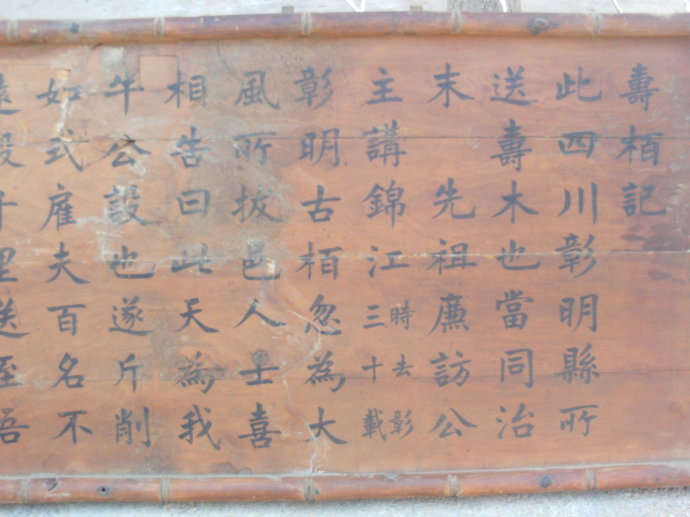 壽栢記
此四川彰明縣所
送壽木也當同治
末先祖廉訪公
主講錦江時去彰三十載
彰明古栢忽為大
風所拔邑人士喜
相告曰此天為我
牛公設也遂斤削
如式雇夫百名不
遠段千里送至吾